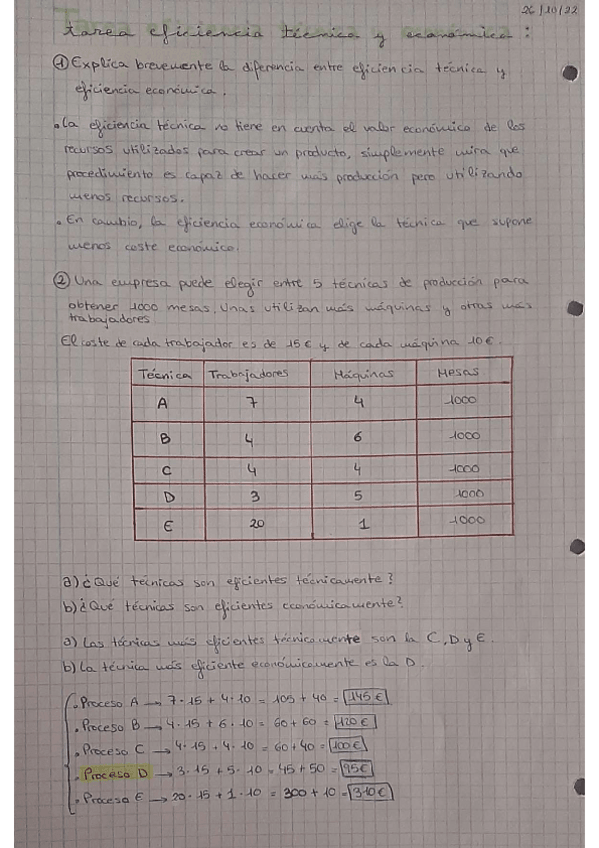 26/10/22
tarea eficiencia técnica y económica:
① Explica brevemente la diferencia entre eficiencia técnica y
eficiencia económica.
• La eficiencia técnica no tiene en cuenta el valor económico de los
recursos utilizados para crear un producto, simplemente mira que
procedimiento es capaz de hacer más producción pero utilizando
menos recursos.
• En cambio, la eficiencia económica elige la técnica que supone
menos coste económico.
② Una empresa puede elegir entre 5 técnicas de producción para
obtener 1000 mesas. Unas utilizan más máquinas y otras más
trabajadores.
El coste de cada trabajador es de 15€ y de cada máquina 10€.
Técnica Trabajadores Máquinas Mesas
A 7 4 1000
B 4 6 1000
C 4 4 1000
D 3 5 1000
E 20 1 1000
a) ¿Qué técnicas son eficientes técnicamente?
b) ¿Qué técnicas son eficientes económicamente?
a) Las técnicas más eficientes técnicamente son la C, D y E.
b) La técnica más eficiente económicamente es la D.
• Proceso A → 7·15 + 4·10 = 105 + 40 = 145€
• Proceso B → 4·15 + 6·10 = 60 + 60 = 120€
• Proceso C → 4·15 + 4·10 = 60 + 40 = 100€
• Proceso D → 3·15 + 5·10 = 45 + 50 = 95€
• Proceso E → 20·15 + 1·10 = 300 + 10 = 310€